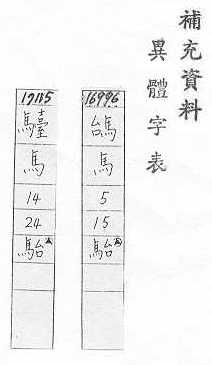 補充資料
異體字表
16996
馬
5
15
駘
馬
14
24
駘